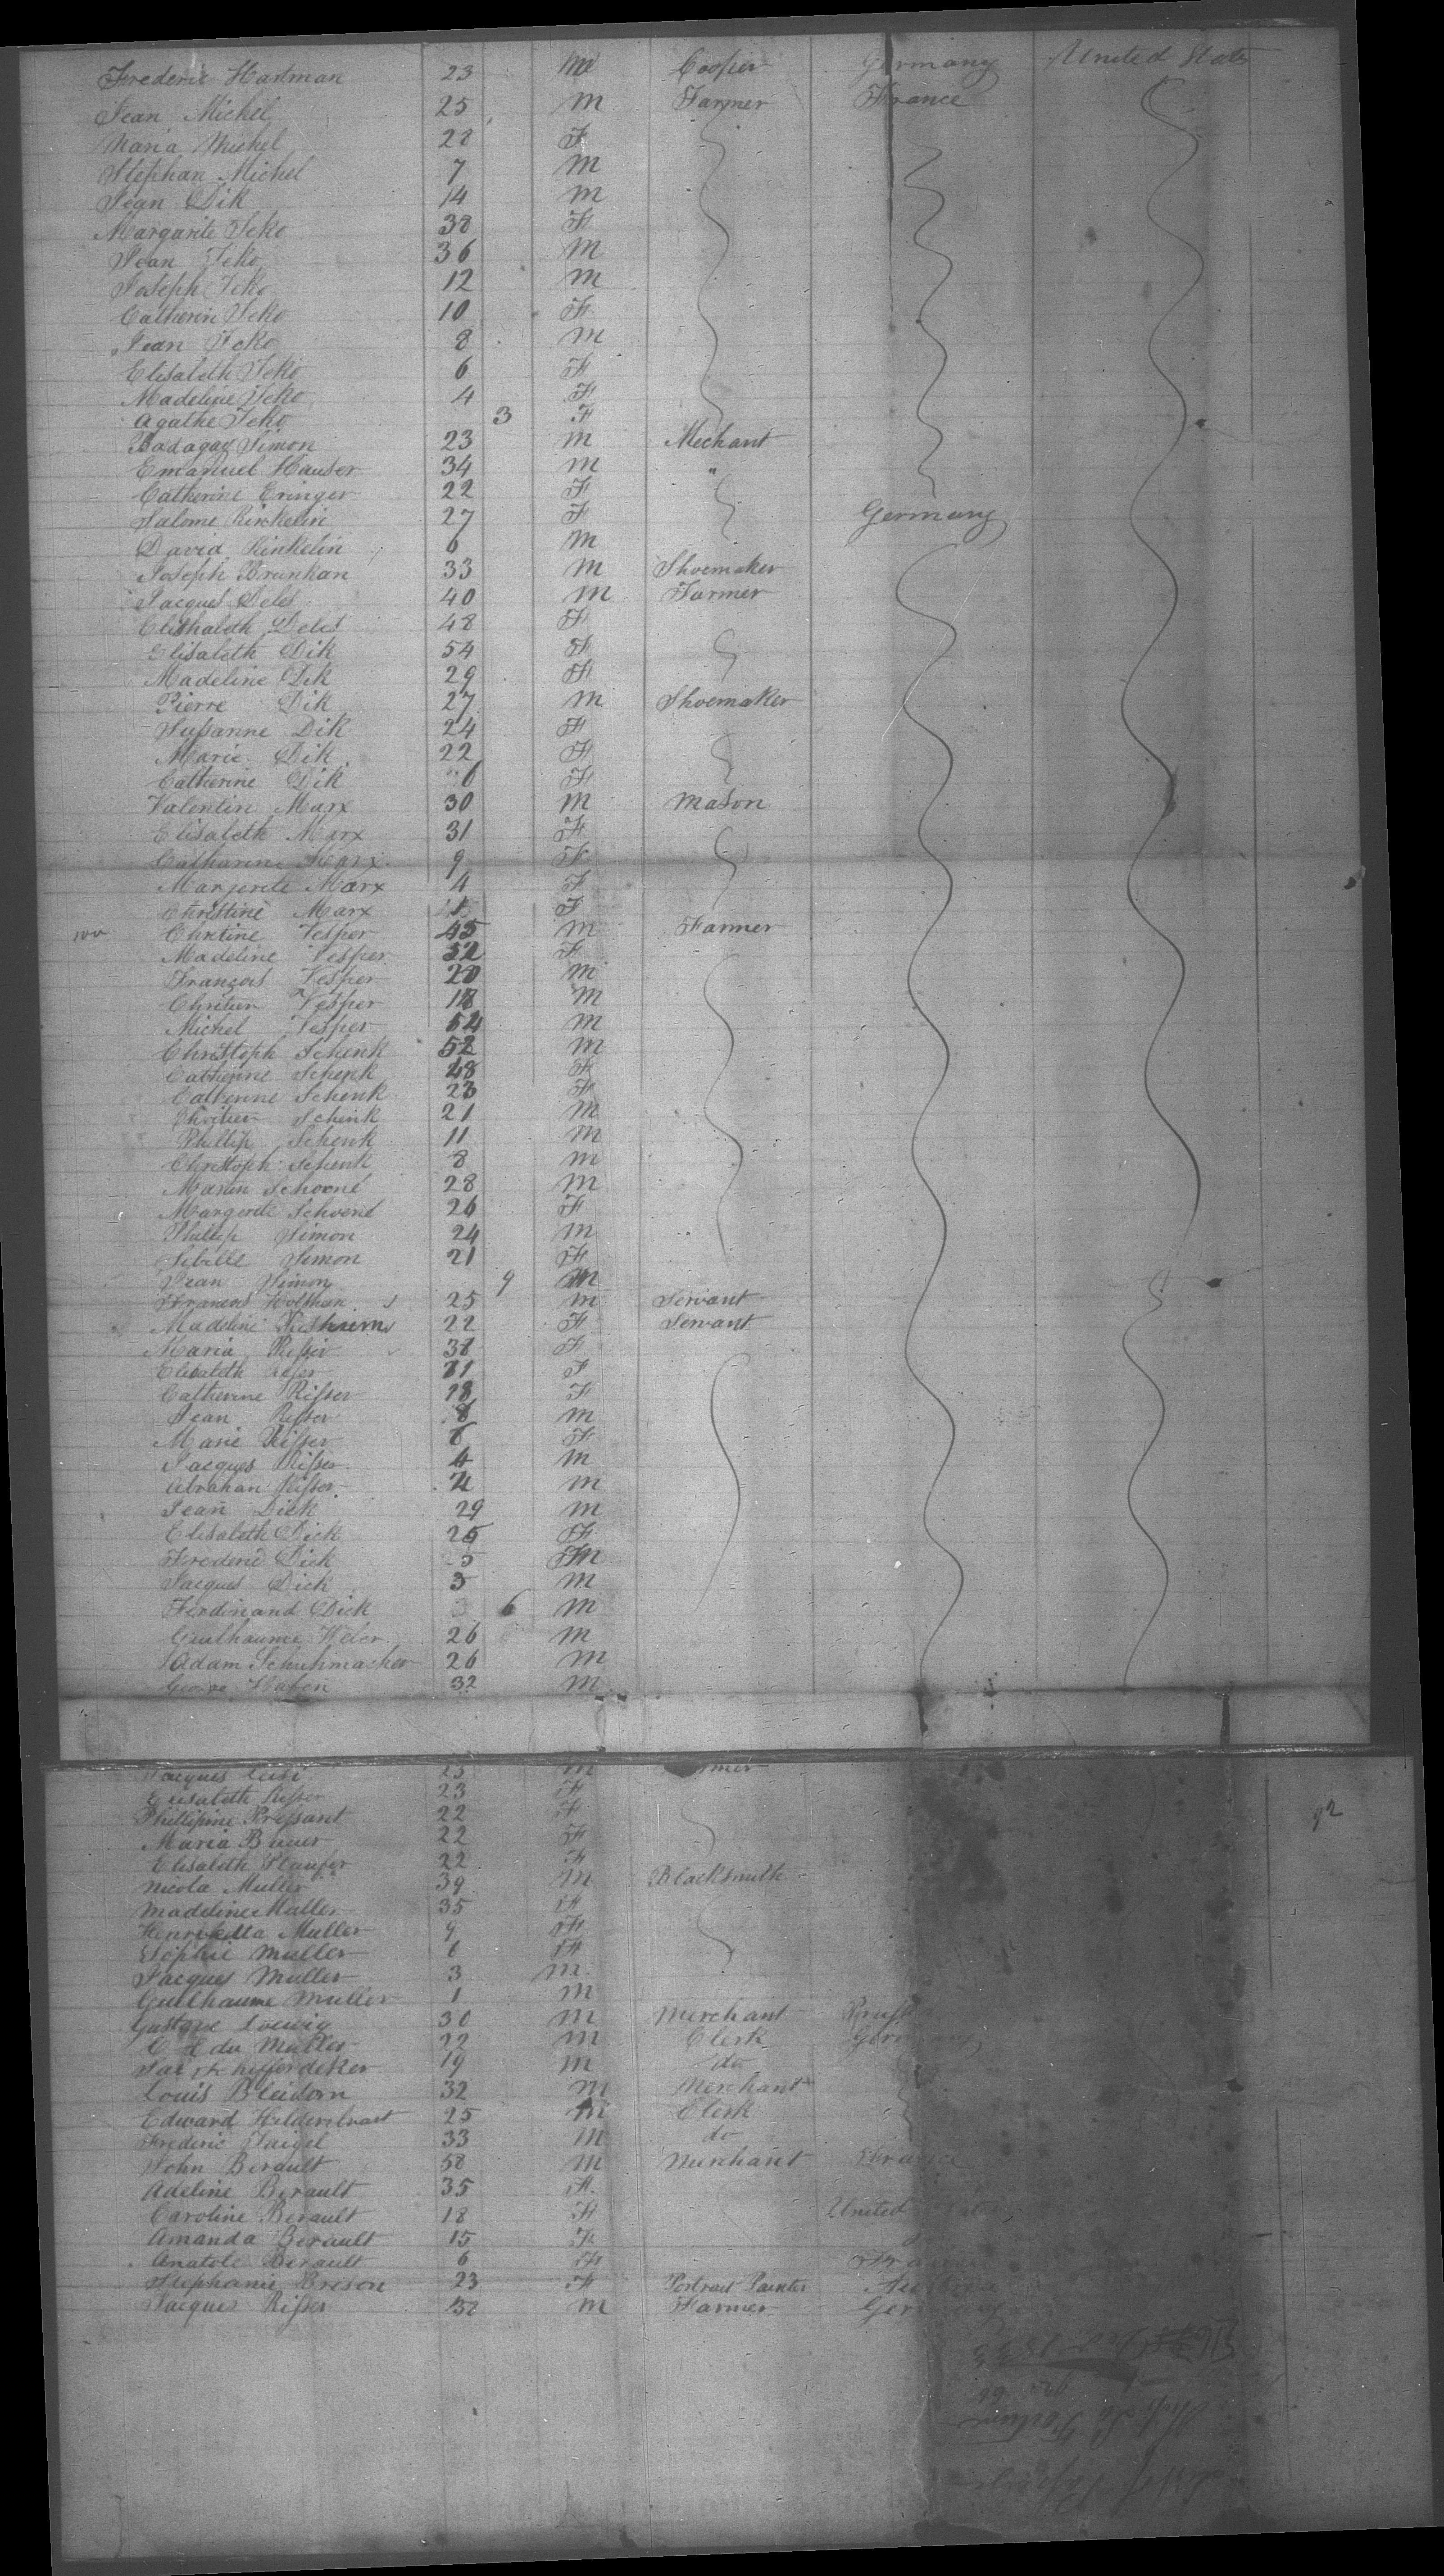 Frederic Hartman 23 M Cooper Germany United States
Jean Michel 25 M Farmer France
Maria Michel 28 F
Stephan Michel 7 M
Jean Dik 14 M
Margarite Jeko 38 F
Jean Jeko 36 M
Joseph Jeko 12 M
Catherine Jeko 10 F
Jean Jeko 8 M
Elisabeth Jeko 6 F
Madeline Jeko 4 F
Agathe Jeko 3 F
Simon 23 M Mechant
Emanuel Hauser 34 M "
Catherine Eringer 22 F
Salome Rinkelin 27 F Germany
David Rinkelin 6 M
Joseph Brunhan 33 M Shoemaker
Jacques Deles 40 M Farmer
Elishabeth Deles 48 F
Elisabeth Dik 54 F
Madeline Dik 29 F
Pierre Dik 27 M Shoemaker
Susanne Dik 24 F
Marie Dik 22 F
Catherine Dik 6 F
Valentin Marx 30 M Mason
Elisabeth Marx 31 F
Catharine Marx 9 F
Margerete Marx 4 F
Christine Marx F
100 Chretine Vesper 45 M Farmer
Madeline Vesper 52 F
François Vesper 20 M
Chritien Vesper 18 M
Michel Vesper M
Christoph Schenk 52 M
Catherine Schenk 48 F
Catherine Schenk 23 F
Chritien Schenk 21 M
Phillip Schenk 11 M
Christoph Schenk 8 M
Martin Schoené 28 M
Margerete Schoené 26 F
Phillip Simon 24 M
Sibille Simon 21 F
Jean Simon 9 M
Francois 25 M Servant
Madeline 22 F Servant
Maria Risser 38 F
Elisabeth Risser F
Catherine Risser 18 F
Jean Risser 8 M
Marie Risser 6 F
Jacques Risser 4 M
Abrahan Risser M
Jean Dick 29 M
Elisabeth Dick 25 F
Frederic Dick 5 M
Jacques Dick 3 M
Ferdinand Dick 6 M
Guilhaume Weber 26 M
Adam Schuhmacher 26 M
32 M
Jacques M
Elisabeth Risser 23 F
Phillipine Pressant 22 F
Maria Bauer 22 F 92
Elisabeth 22 F
Nicola Muller 39 M Blacksmith
Madeline Muller 35 F
Henriketta Muller 9 F
Sophie Muller 6 F
Jacques Muller 3 M
Guilhaume Muller 1 M
Gustave Loewig 30 M Merchant
Muller 22 M Clerk Germany
19 M do
Louis Bleidorn 32 M Merchant
Edward Hilderbrant 25 M Clerk
Frederic Taigel 33 M do
John Berault 58 M Merchant France
Adeline Berault 35 F
Caroline Berault 18 F United States
Amanda Berault 15 F
Anatole Berault 6 F
Stephanie Breson 23 F Portrait Painter
Jacques Risser 38 M Farmer Germany